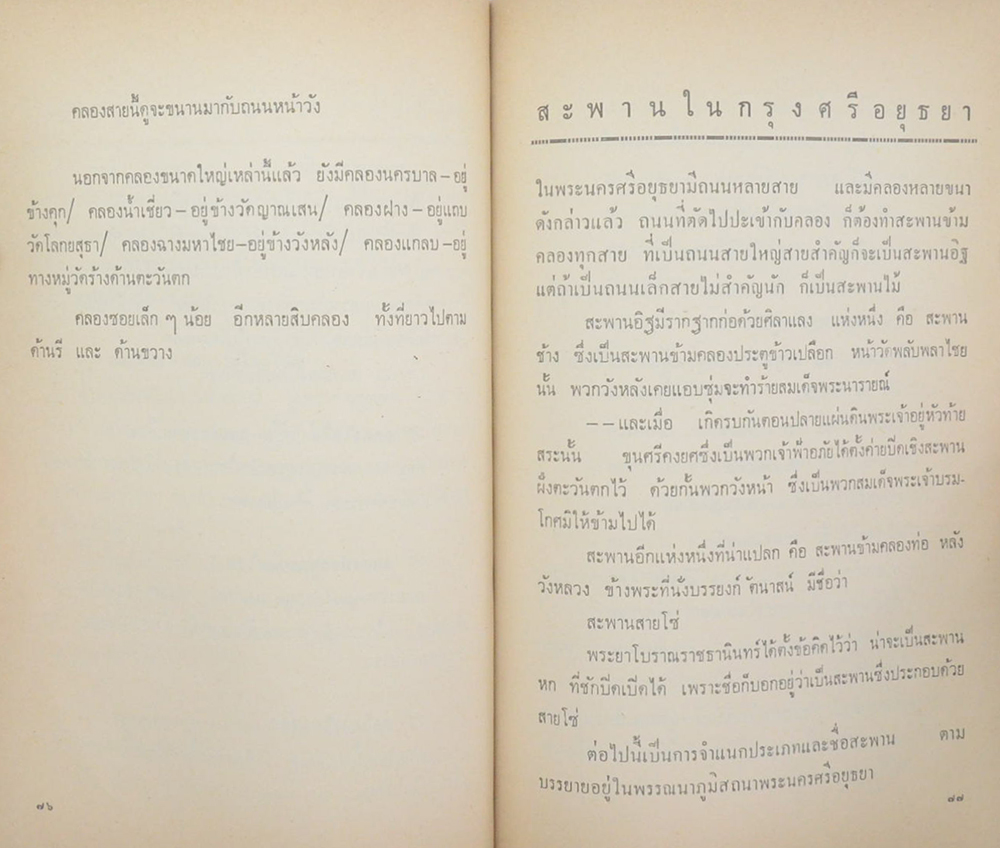 คลองสายนี้ดูจะขนานมากับถนนหน้าวัง
นอกจากคลองขนาดใหญ่เหล่านี้แล้ว ยังมีคลองนครบาล – อยู่
ข้างคุก/ คลองน้ำเชี่ยว – อยู่ข้างวัดญาณเสน/ คลองฝาง – อยู่แถบ
วัดโลกยสุธา/ คลองฉางมหาไชย–อยู่ข้างวังหลัง/ คลองแกลบ –อยู่
ทางหมู่วัดร้างด้านตะวันตก
คลองซอยเล็ก ๆ น้อย อีกหลายสิบคลอง ทั้งที่ยาวไปตาม
ด้านรี และ ด้านขวาง
๗๖
สะพานในกรุงศรีอยุธยา
ในพระนครศรีอยุธยามีถนนหลายสาย และมีคลองหลายขนา
ดังกล่าวแล้ว ถนนที่ตัดไปปะเข้ากับคลอง ก็ต้องทำสะพานข้าม
คลองทุกสาย ที่เป็นถนนสายใหญ่สายสำคัญก็จะเป็นสะพานอิฐ
แต่ถ้าเป็นถนนเล็กสายไม่สำคัญนัก ก็เป็นสะพานไม้
สะพานอิฐมีรากฐากก่อด้วยศิลาแลง แห่งหนึ่ง คือ สะพาน
ช้าง ซึ่งเป็นสะพานข้ามคลองประตูข้าวเปลือก หน้าวัดพลับพลาไชย
นั้น พวกวังหลังเคยแอบซุ่มจะทำร้ายสมเด็จพระนารายณ์
– – และเมื่อ เกิดรบกันตอนปลายแผ่นดินพระเจ้าอยู่หัวท้าย
สระนั้น ขุนศรีคงยศซึ่งเป็นพวกเจ้าฟ้าอภัยได้ตั้งค่ายปิดเชิงสะพาน
ฝั่งตะวันตกไว้ ด้วยกั้นพวกวังหน้า ซึ่งเป็นพวกสมเด็จพระเจ้าบรม-
โกศมิให้ข้ามไปได้
สะพานอีกแห่งหนึ่งที่น่าแปลก คือ สะพานข้ามคลองท่อ หลัง
วังหลวง ข้างพระที่นั่งบรรยงก์ รัตนาสน์ มีชื่อว่า
สะพานสายโซ่
พระยาโบราณราชธานินทร์ได้ตั้งข้อคิดไว้ว่า น่าจะเป็นสะพาน
หก ที่ชักปิดเปิดได้ เพราะชื่อก็บอกอยู่ว่าเป็นสะพานซึ่งประกอบด้วย
สายโซ่
ต่อไปนี้เป็นการจำแนกประเภทและชื่อสะพาน ตาม
บรรยายอยู่ในพรรณนาภูมิสถานาพระนครศรีอยุธยา
๗๗